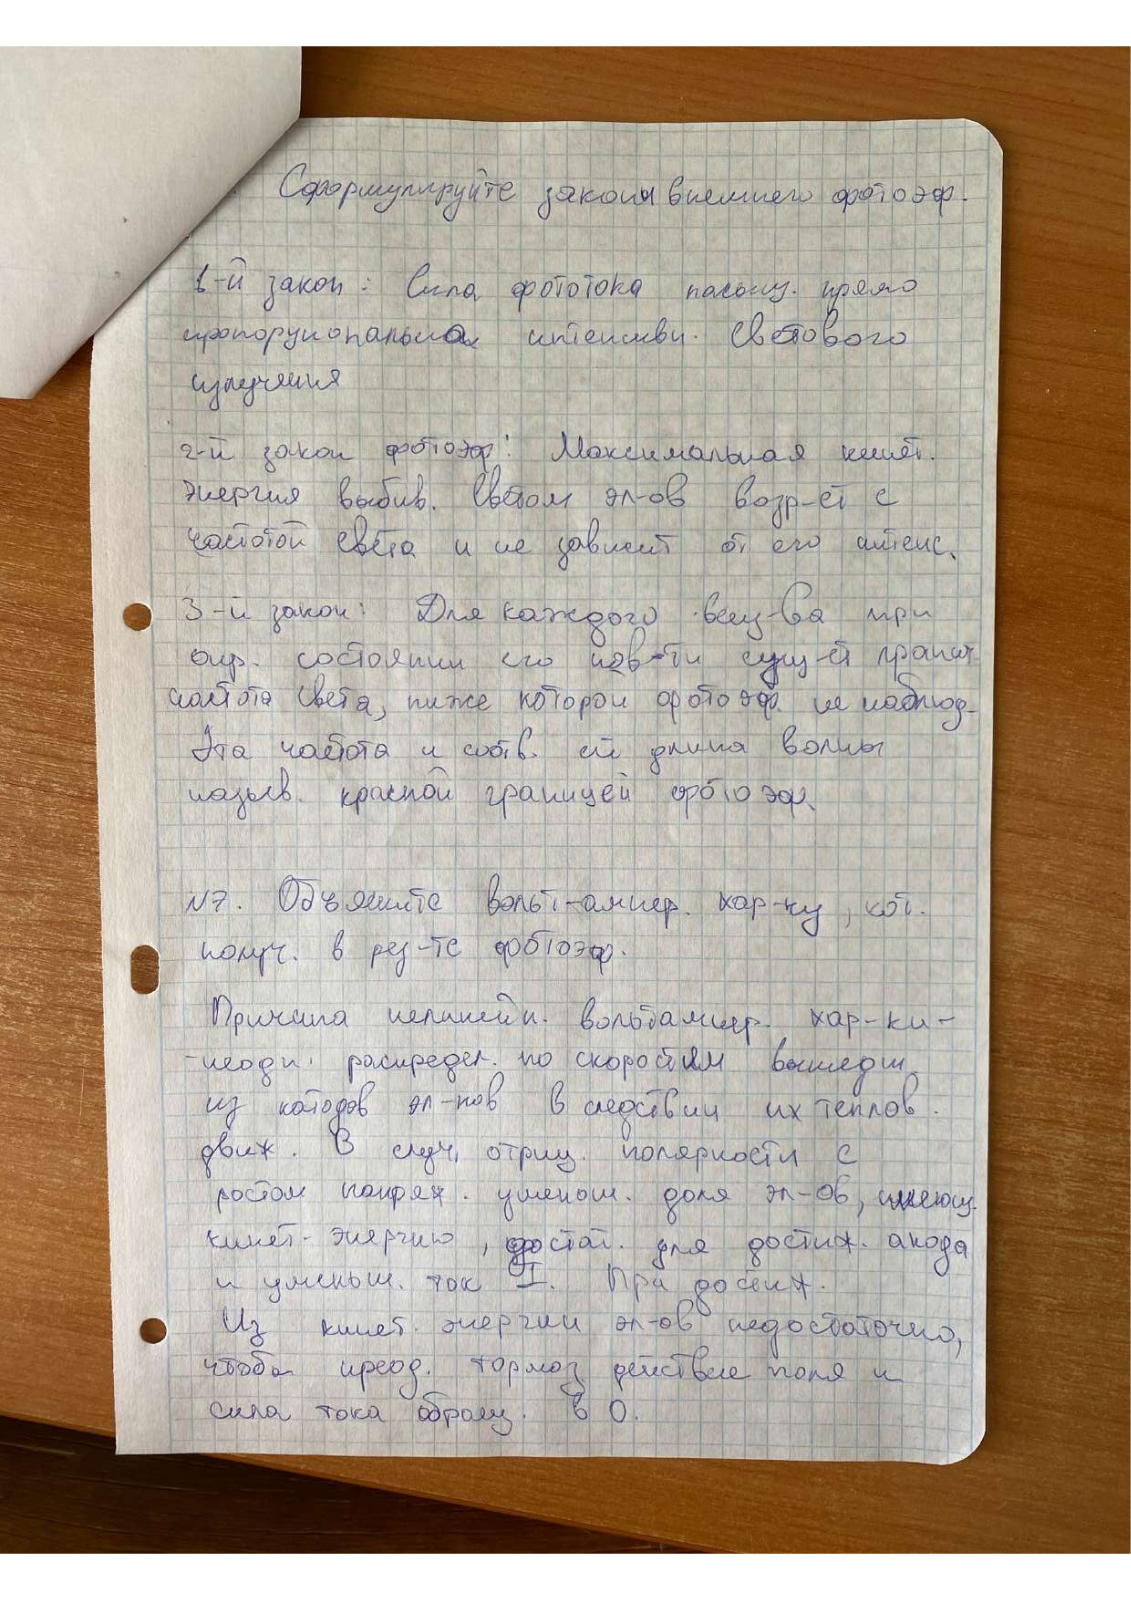 Сформулируйте законы внешнего фотоэф.
1-й закон: Сила фототока насыщ. прямо
пропорциональна интенсивн. светового
излучения
2-й закон фотоэф: Максимальная кинет.
энергия выбив. светом эл-ов возр-ет с
частотой света и не зависит от его интенс.
3-й закон: Для каждого вещ-ва при
опр. состоянии его пов-ти сущ-ет гранич.
частота света, ниже которой фотоэф. не наблюд.
Эта частота и соотв. ей длина волны
назыв. красной границей фотоэф.
N7. Объясните вольт-ампер. хар-ку, кот.
получ. в рез-те фотоэф.
Причина нелинейн. вольтампер. хар-ки-
-неодн. распредел. по скоростям вышедш.
из катодов эл-нов в следствии их теплов.
движ. В случ. отриц. полярности с
ростом напряж. уменьш. доля эл-ов, имеющ.
кинет. энергию, достат. для достиж. анода
и уменьш. ток I. При достиж.
Из кинет. энергии эл-ов недостаточно,
чтобы преод. тормоз. действие поля и
сила тока обращ. в 0.